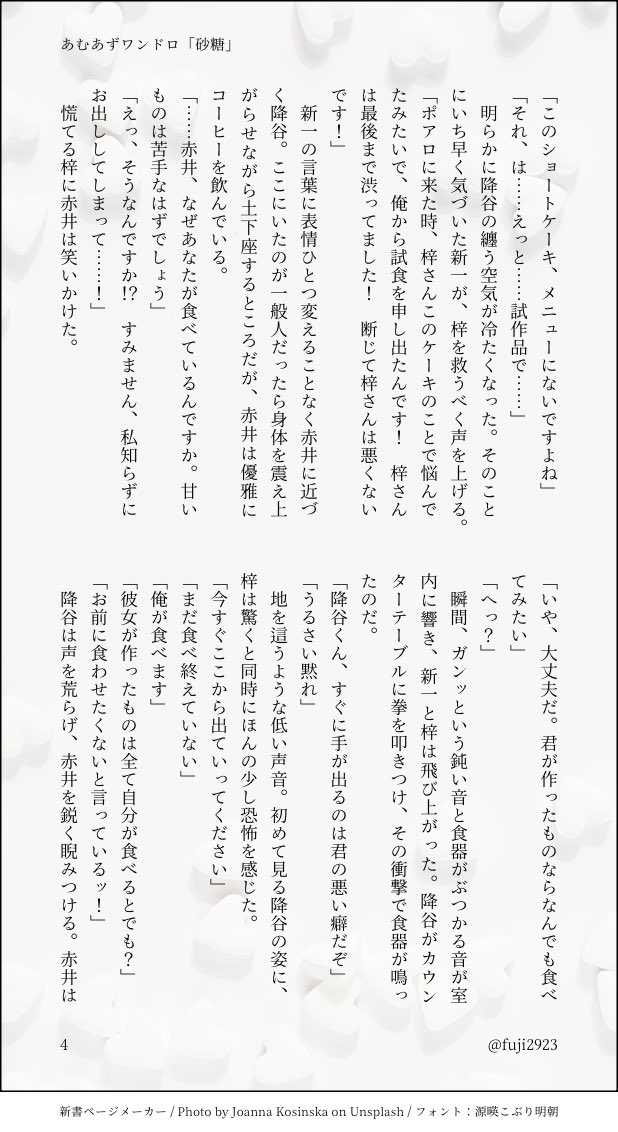 あむあずワンドロ「砂糖」
「このショートケーキ、メニューにないですよね」
「それ、は……えっと……試作品で……」
　明らかに降谷の纏う空気が冷たくなった。そのこと
にいち早く気づいた新一が、梓を救うべく声を上げる。
「ポアロに来た時、梓さんこのケーキのことで悩んで
たみたいで、俺から試食を申し出たんです！　梓さん
は最後まで渋ってました！　断じて梓さんは悪くない
です！」
　新一の言葉に表情ひとつ変えることなく赤井に近づ
く降谷。ここにいたのが一般人だったら身体を震え上
がらせながら土下座するところだが、赤井は優雅に
コーヒーを飲んでいる。
「……赤井、なぜあなたが食べているんですか。甘い
ものは苦手なはずでしょう」
「えっ、そうなんですか!?　すみません、私知らずに
お出ししてしまって……！」
　慌てる梓に赤井は笑いかけた。
「いや、大丈夫だ。君が作ったものならなんでも食べ
てみたい」
「へっ？」
　瞬間、ガンッという鈍い音と食器がぶつかる音が室
内に響き、新一と梓は飛び上がった。降谷がカウン
ターテーブルに拳を叩きつけ、その衝撃で食器が鳴っ
たのだ。
「降谷くん、すぐに手が出るのは君の悪い癖だぞ」
「うるさい黙れ」
　地を這うような低い声音。初めて見る降谷の姿に、
梓は驚くと同時にほんの少し恐怖を感じた。
「今すぐここから出ていってください」
「まだ食べ終えていない」
「俺が食べます」
「彼女が作ったものは全て自分が食べるとでも？」
「お前に食わせたくないと言っているッ！」
　降谷は声を荒らげ、赤井を鋭く睨みつける。赤井は
4
@fuji2923
新書ページメーカー / Photo by Joanna Kosinska on Unsplash / フォント：源暎こぶり明朝